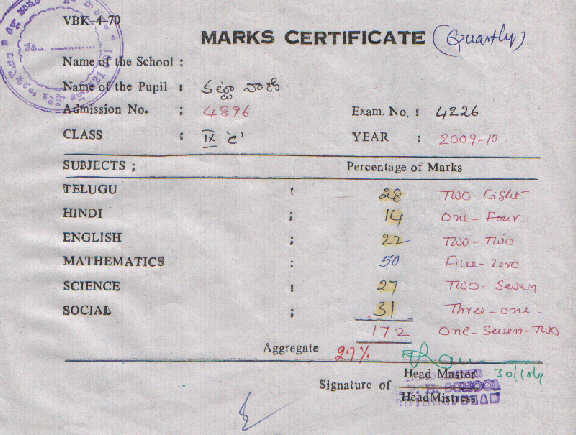 VBK-4-70
MARKS CERTIFICATE (Quartly)
Name of the School :
Name of the Pupil :
Admission No. : 4896 Exam. No. : 4226
CLASS : IX YEAR : 2009-10
SUBJECTS ; Percentage of Marks
TELUGU : 28 Two Eight
HINDI ; 14 One-Four
ENGLISH ; 22 Two-Two
MATHEMATICS : 50 Five-Zero
SCIENCE : 27 Two-Seven
SOCIAL ; 31 Three-one-
172 One-Seven-Two
Aggregate 29%
Signature of Head Master
HeadMistress